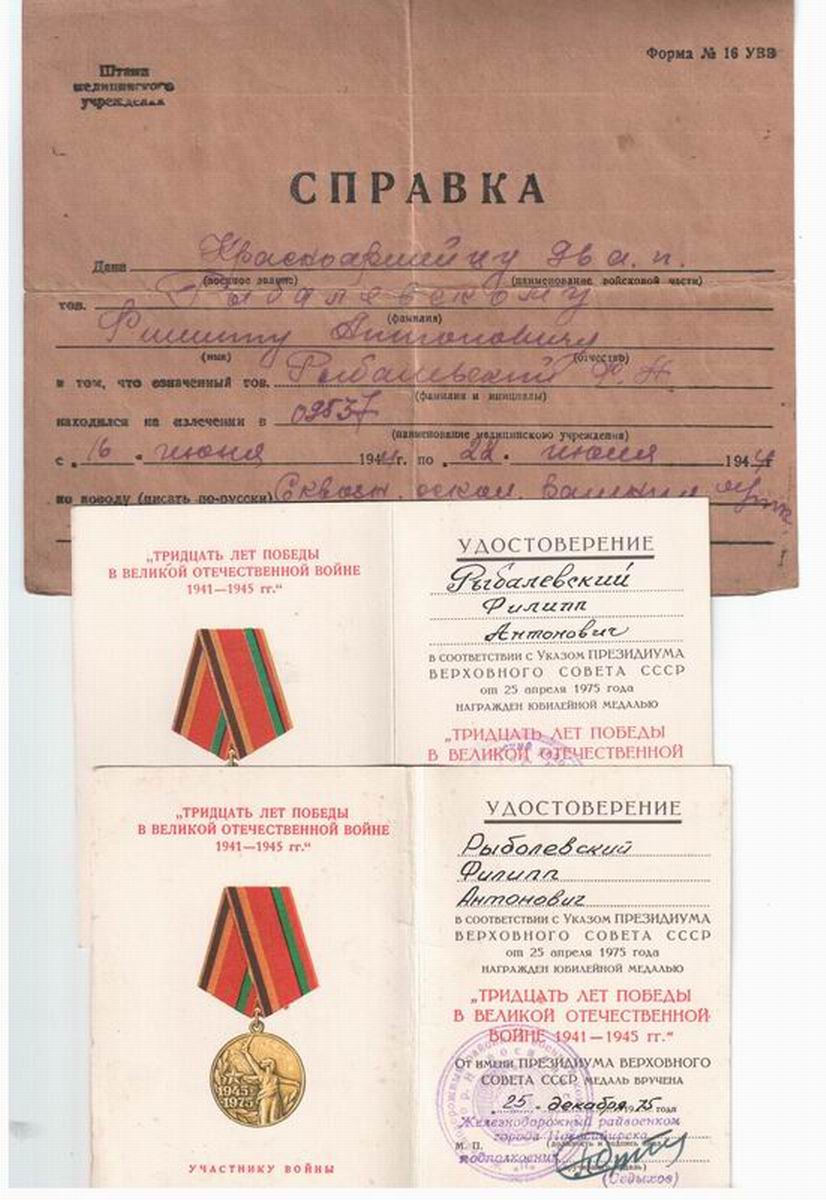 Штамп
медицинского
учреждения
Форма № 16 УВЭ
СПРАВКА
Дана Красноармейцу
(военное звание) (наименование войсковой части)
тов. Рыбалевскому
(фамилия)
Филиппу Антоновичу
(имя) (отчество)
в том, что означенный тов. Рыбальвский
(фамилия и инициалы)
находился на излечении в 02537
(наименование медицинского учреждения)
с „16“ июня 1944г. по „22“ июня 1944
по поводу (писать по-русски)
„ТРИДЦАТЬ ЛЕТ ПОБЕДЫ
В ВЕЛИКОЙ ОТЕЧЕСТВЕННОЙ ВОЙНЕ
1941—1945 гг.“
УДОСТОВЕРЕНИЕ
Рыбалевский
Филипп
Антонович
В СООТВЕТСТВИИ С УКАЗОМ ПРЕЗИДИУМА
ВЕРХОВНОГО СОВЕТА СССР
от 25 апреля 1975 года
НАГРАЖДЕН ЮБИЛЕЙНОЙ МЕДАЛЬЮ
„ТРИДЦАТЬ ЛЕТ ПОБЕДЫ
В ВЕЛИКОЙ ОТЕЧЕСТВЕННОЙ
„ТРИДЦАТЬ ЛЕТ ПОБЕДЫ
В ВЕЛИКОЙ ОТЕЧЕСТВЕННОЙ ВОЙНЕ
1941—1945 гг.“
1945
1975
УЧАСТНИКУ ВОЙНЫ
УДОСТОВЕРЕНИЕ
Рыболевский
Филипп
Антонович
В СООТВЕТСТВИИ С УКАЗОМ ПРЕЗИДИУМА
ВЕРХОВНОГО СОВЕТА СССР
от 25 апреля 1975 года
НАГРАЖДЕН ЮБИЛЕЙНОЙ МЕДАЛЬЮ
„ТРИДЦАТЬ ЛЕТ ПОБЕДЫ
В ВЕЛИКОЙ ОТЕЧЕСТВЕННОЙ
ВОЙНЕ 1941—1945 гг.“
ОТ ИМЕНИ ПРЕЗИДИУМА ВЕРХОВНОГО
СОВЕТА СССР МЕДАЛЬ ВРУЧЕНА
„25“ декабря 1975 года
Железнодорожный райвоенком
города Новосибирска
М. П.
подполковник
(Седыхов)